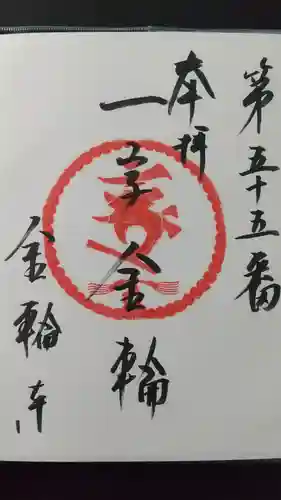 第五十五番
奉拝
一字金輪
金輪寺